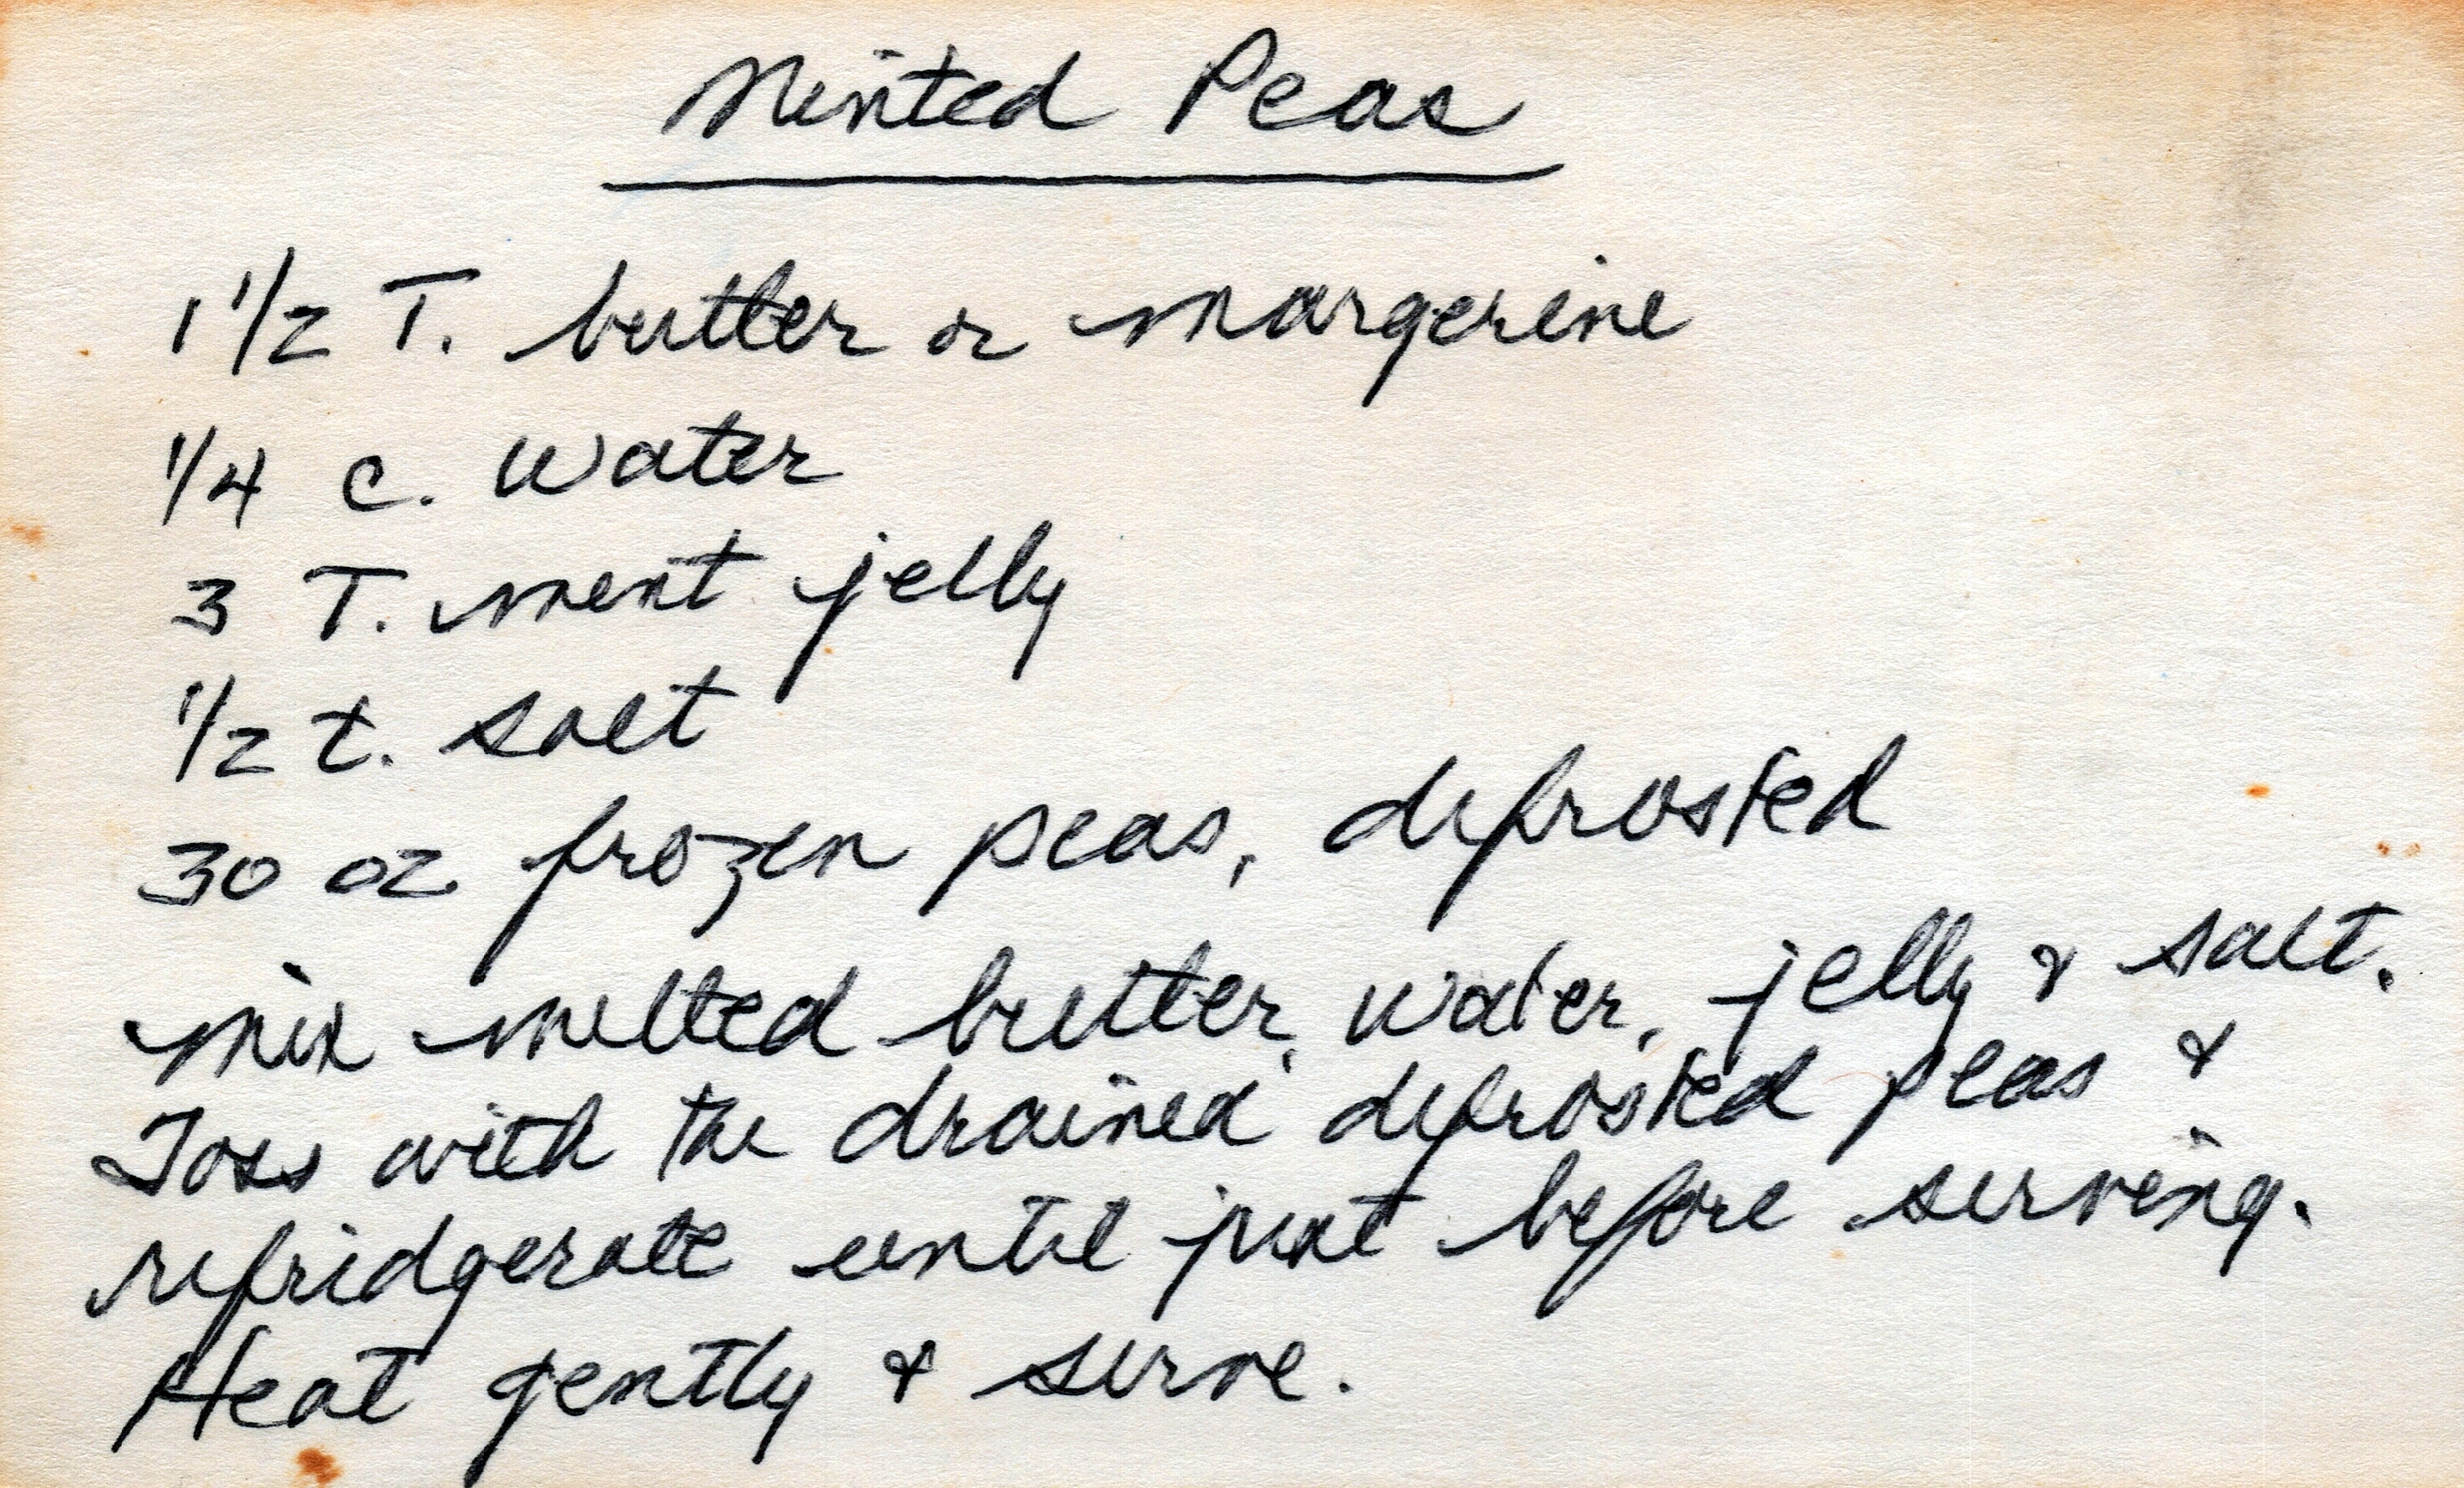 Minted Peas
1 1/2 T. butter or margerine
1/4 c. water
3 T. mint jelly
1/2 t. salt
30 oz frozen peas, defrosted
Mix melted butter, water, jelly & salt.
Toss with the drained defrosted peas &
refridgerate until just before serving.
Heat gently & serve.